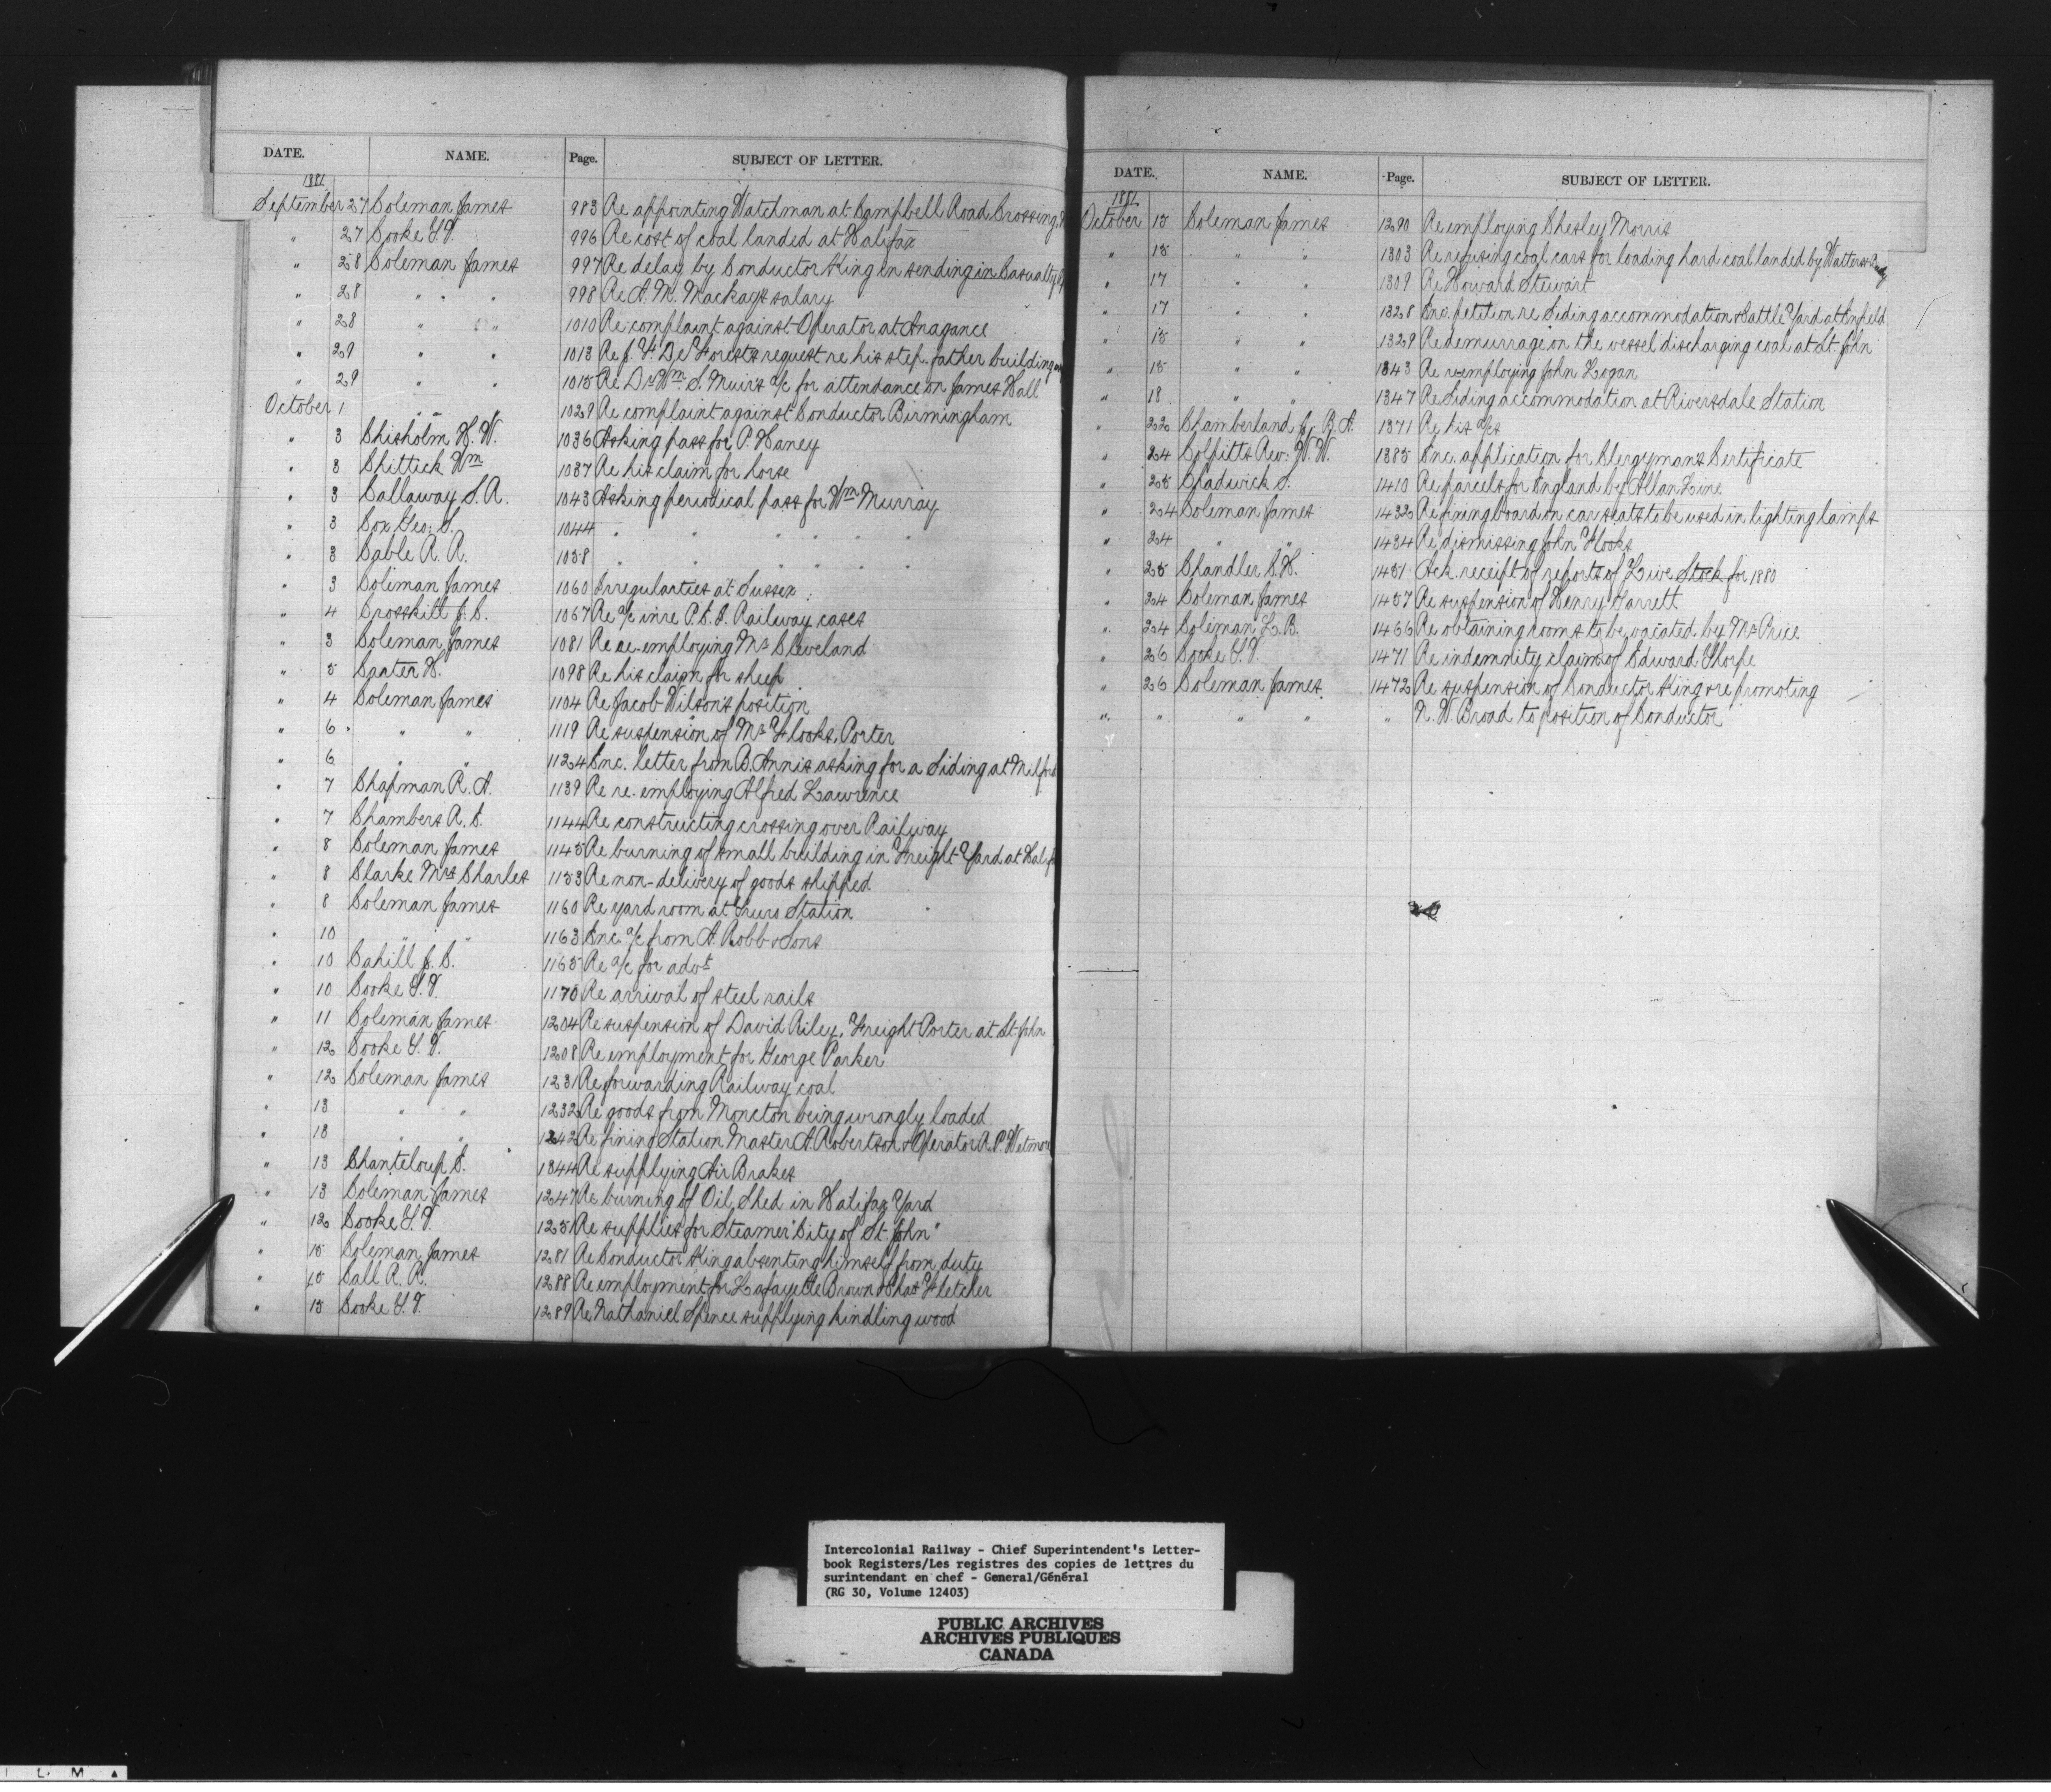 DATE. NAME. Page. SUBJECT OF LETTER.
1881
September 27 Coleman James 983 Re appointing Watchman at Campbell Road Crossing
" 27 Cooke T. V. 996 Re cost of coal landed at Halifax
" 28 Coleman James 997 Re delay by Conductor King in sending in Casualty
" 28 " " 998 Re A. M. Mackay's salary
" 28 " " 1010 Re complaint against Operator at Anagance
" 29 " " 1013 Re J. F. DeForests request re his step-father building
" 29 " " 1015 Re Dr Wm. S. Muir's a/c for attendance on James Hall
October 1 " " 1029 Re complaint against Conductor Birmingham
" 3 Chisholm H. W. 1036 Asking pass for P. Haney
" 3 Chittick Wm 1037 Re his claim for horse
" 3 Callaway S. A. 1043 Asking periodical pass for Wm Murray
" 3 Cox Geo: S. 1044 " " " " " "
" 3 Cable A. A. 1058 " " " " " "
" 3 Coleman James 1060 Irregularties at Sussex
" 4 Crosskill J. C. 1067 Re a/c in re P. E. I. Railway cases
" 3 Coleman James 1081 Re re-employing Mr Cleveland
" 5 Carter H. 1098 Re his claim for sheep
" 4 Coleman James 1104 Re Jacob Wilson's position
" 6 " " 1119 Re suspension of Mr Flooks, Porter
" 6 " " 1124 Enc. letter from B. Annis asking for a Siding at Milford
" 7 Chapman R. A. 1139 Re re-employing Alfred Lawrence
" 7 Chambers R. E. 1144 Re constructing crossing over Railway
" 8 Coleman James 1145 Re burning of small building in Freight Yard at Halifax
" 8 Clarke Mrs Charles 1153 Re non-delivery of goods shipped
" 8 Coleman James 1160 Re yard room at Truro Station
" 10 " " 1163 Enc. a/c from A. Robb & Sons
" 10 Cahill J. C. 1165 Re a/c for advt
" 10 Cooke T. V. 1170 Re arrival of steel rails
" 11 Coleman James 1204 Re suspension of David Riley, Freight Porter at St. John
" 12 Cooke T. V. 1208 Re employment for George Parker
" 12 Coleman James 1231 Re forwarding Railway coal
" 13 " " 1232 Re goods from Moncton being wrongly loaded
" 13 " " 1242 Re fining Station Master A. Robertson & Operator A. P. Wetmore
" 13 Chanteloup E. 1344 Re supplying Air Brakes
" 13 Coleman James 1247 Re burning of Oil Shed in Halifax Yard
" 12 Cooke T. V. 1251 Re supplies for Steamer "City of St. John"
" 15 Coleman James 1281 Re Conductor King absenting himself from duty
" 15 Call R. R. 1288 Re employment for Lafayette Brown & Chas Fletcher
" 15 Cooke T. V. 1289 Re Nathaniel Spence supplying kindling wood
DATE. NAME. Page. SUBJECT OF LETTER.
1881
October 15 Coleman James 1290 Re employing Chesley Morris
" 15 " " 1303 Re refusing coal cars for loading hard coal landed by Watters
" 17 " " 1309 Re Howard Stewart
" 17 " " 1328 Enc. petition re Siding accommodation & Cattle Yard at Enfield
" 15 " " 1329 Re demurrage on the vessel discharging coal at St. John
" 15 " " 1343 Re re-employing John Logan
" 18 " " 1347 Re Siding accommodation at Riversdale Station
" 22 Chamberland R. A. 1371 Re his a/cs
" 24 Colpitts Rev: W. W. 1385 Enc. application for Clergyman's Certificate
" 25 Chadwick S. 1410 Re parcels for England by Allan Line
" 24 Coleman James 1432 Re fixing board on car seats to be used in lighting lamps
" 24 " " 1434 Re dismissing John Flooks
" 25 Chandler C. H. 1451 Ack. receipt of reports of Live Stock for 1880
" 24 Coleman James 1457 Re suspension of Henry Garrett
" 24 Coleman L. B. 1466 Re obtaining rooms to be vacated by Mr Price
" 26 Cooke T. V. 1471 Re indemnity claim of Edward Thorpe
" 26 Coleman James 1472 Re suspension of Conductor King & re promoting
" " " " " N. W. Broad to position of Conductor
Intercolonial Railway - Chief Superintendent's Letter-
book Registers/Les registres des copies de lettres du
surintendant en chef - General/Général
(RG 30, Volume 12403)
PUBLIC ARCHIVES
ARCHIVES PUBLIQUES
CANADA